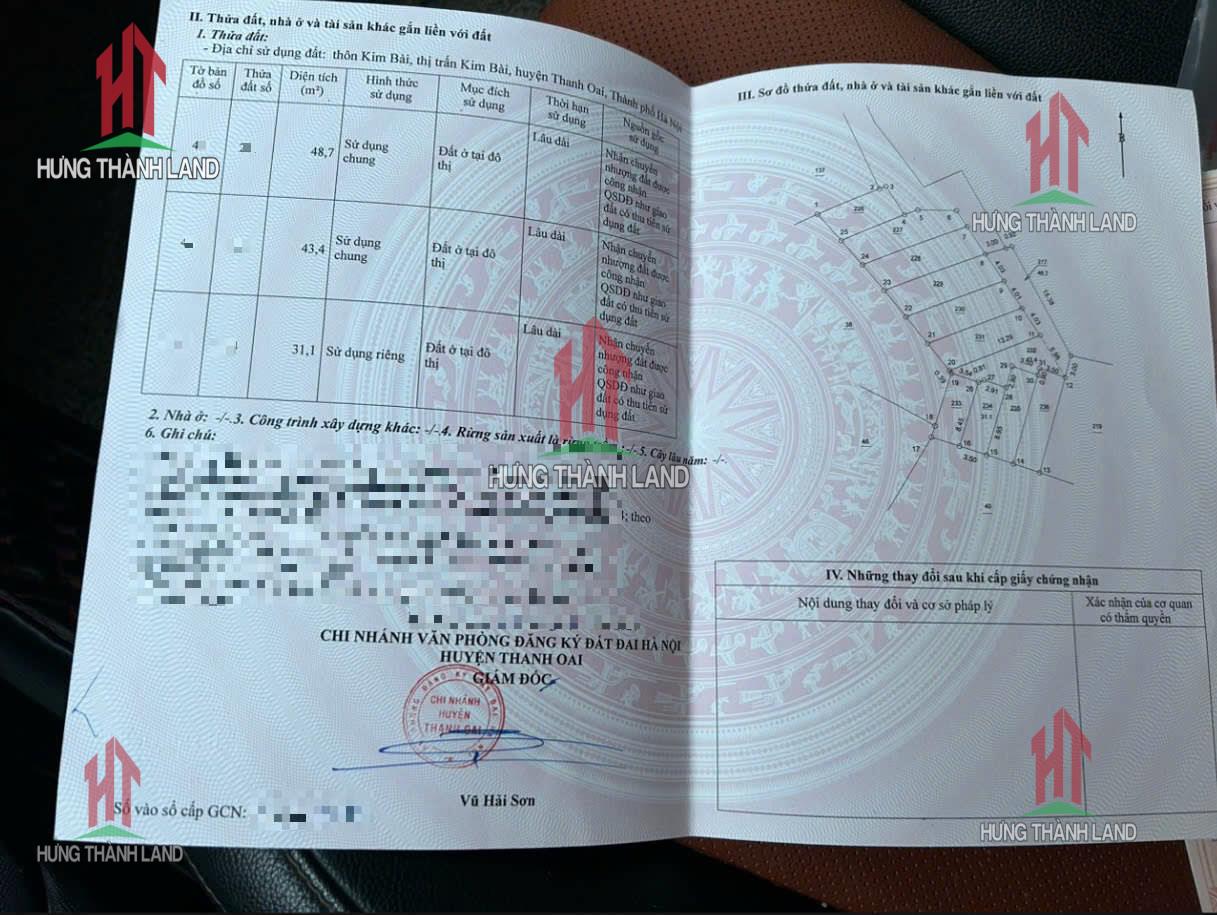 II. Thửa đất, nhà ở và tài sản khác gắn liền với đất
1. Thửa đất:
- Địa chỉ sử dụng đất: thôn Kim Bài, thị trấn Kim Bài, huyện Thanh Oai, Thành phố Hà Nội
Tờ bản đồ số
Thửa đất số
Diện tích (m²)
Hình thức sử dụng
Mục đích sử dụng
Thời hạn sử dụng
Nguồn gốc sử dụng
48,7
Sử dụng chung
Đất ở tại đô thị
Lâu dài
Nhận chuyển nhượng đất được công nhận QSDĐ như giao đất có thu tiền sử dụng đất
43,4
Sử dụng chung
Đất ở tại đô thị
Lâu dài
Nhận chuyển nhượng đất được công nhận QSDĐ như giao đất có thu tiền sử dụng đất
31,1
Sử dụng riêng
Đất ở tại đô thị
Lâu dài
Nhận chuyển nhượng đất được công nhận QSDĐ như giao đất có thu tiền sử dụng đất
2. Nhà ở: -/-.3. Công trình xây dựng khác: -/-4. Rừng sản xuất là rừng trồng :-/-5. Cây lâu năm: -/-.
6. Ghi chú:
; theo
CHI NHÁNH VĂN PHÒNG ĐĂNG KÝ ĐẤT ĐAI HÀ NỘI
HUYỆN THANH OAI
GIÁM ĐỐC
CHI NHÁNH
HUYỆN
THANH OAI
Vũ Hải Sơn
Số vào sổ cấp GCN:
III. Sơ đồ thửa đất, nhà ở và tài sản khác gắn liền với đất
B
137
2
3
1
226
4
5
6
25
227
7
3.00
0.92
24
228
8
4.03
277
48.7
23
229
9
4.01
15.78
22
230
10
4.03
38
21
231
13.29
11
5.98
20
232
43.4
31
3.00
3.00
0.39
3.54
0.81
27
29
30
12
19
26
2.91
28
233
234
31.1
235
236
8.43
8.95
18
46
17
16
3.50
15
14
13
219
40
IV. Những thay đổi sau khi cấp giấy chứng nhận
Nội dung thay đổi và cơ sở pháp lý
Xác nhận của cơ quan có thẩm quyền
HƯNG THÀNH LAND
HƯNG THÀNH LAND
HƯNG THÀNH LAND
HƯNG THÀNH LAND
HƯNG THÀNH LAND